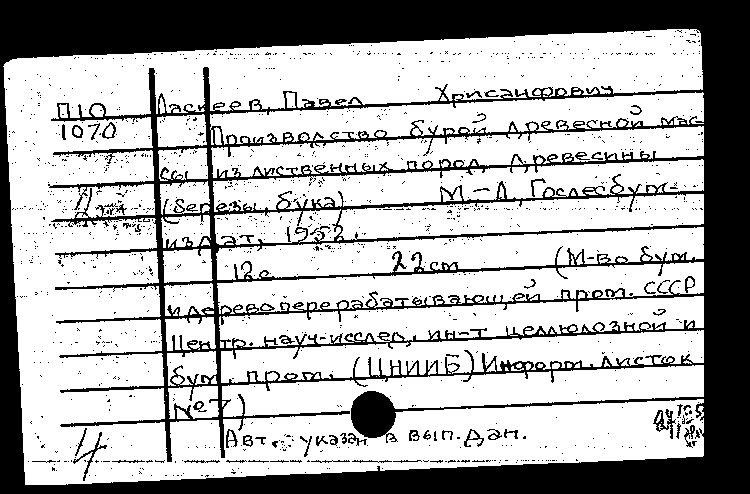 П10 Ласкеев, Павел Хрисанфович
1070 Производство бурой древесной мас-
сы из лиственных пород древесины
(березы, бука) М.-Л., Гослесбум-
издат, 1952.
12с 22cm (М-во бум.
и деревоперерабатывающей пром. СССР
Центр. науч-исслед. ин-т целлюлозной и
бум. пром. (ЦНИИБ) Информ. листок
№ 7)
4 Авт. указан в вып. дан.